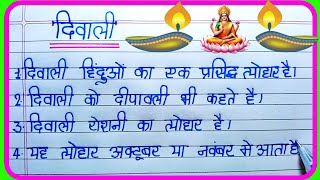 'दिवाली'
1. दिवाली हिंदुओं का एक प्रसिद्ध त्योहार है।
2. दिवाली को दीपावली भी कहते है।
3. दिवाली रोशनी का त्योहार है।
4. यह त्योहार अक्टूबर या नवंबर में आता है